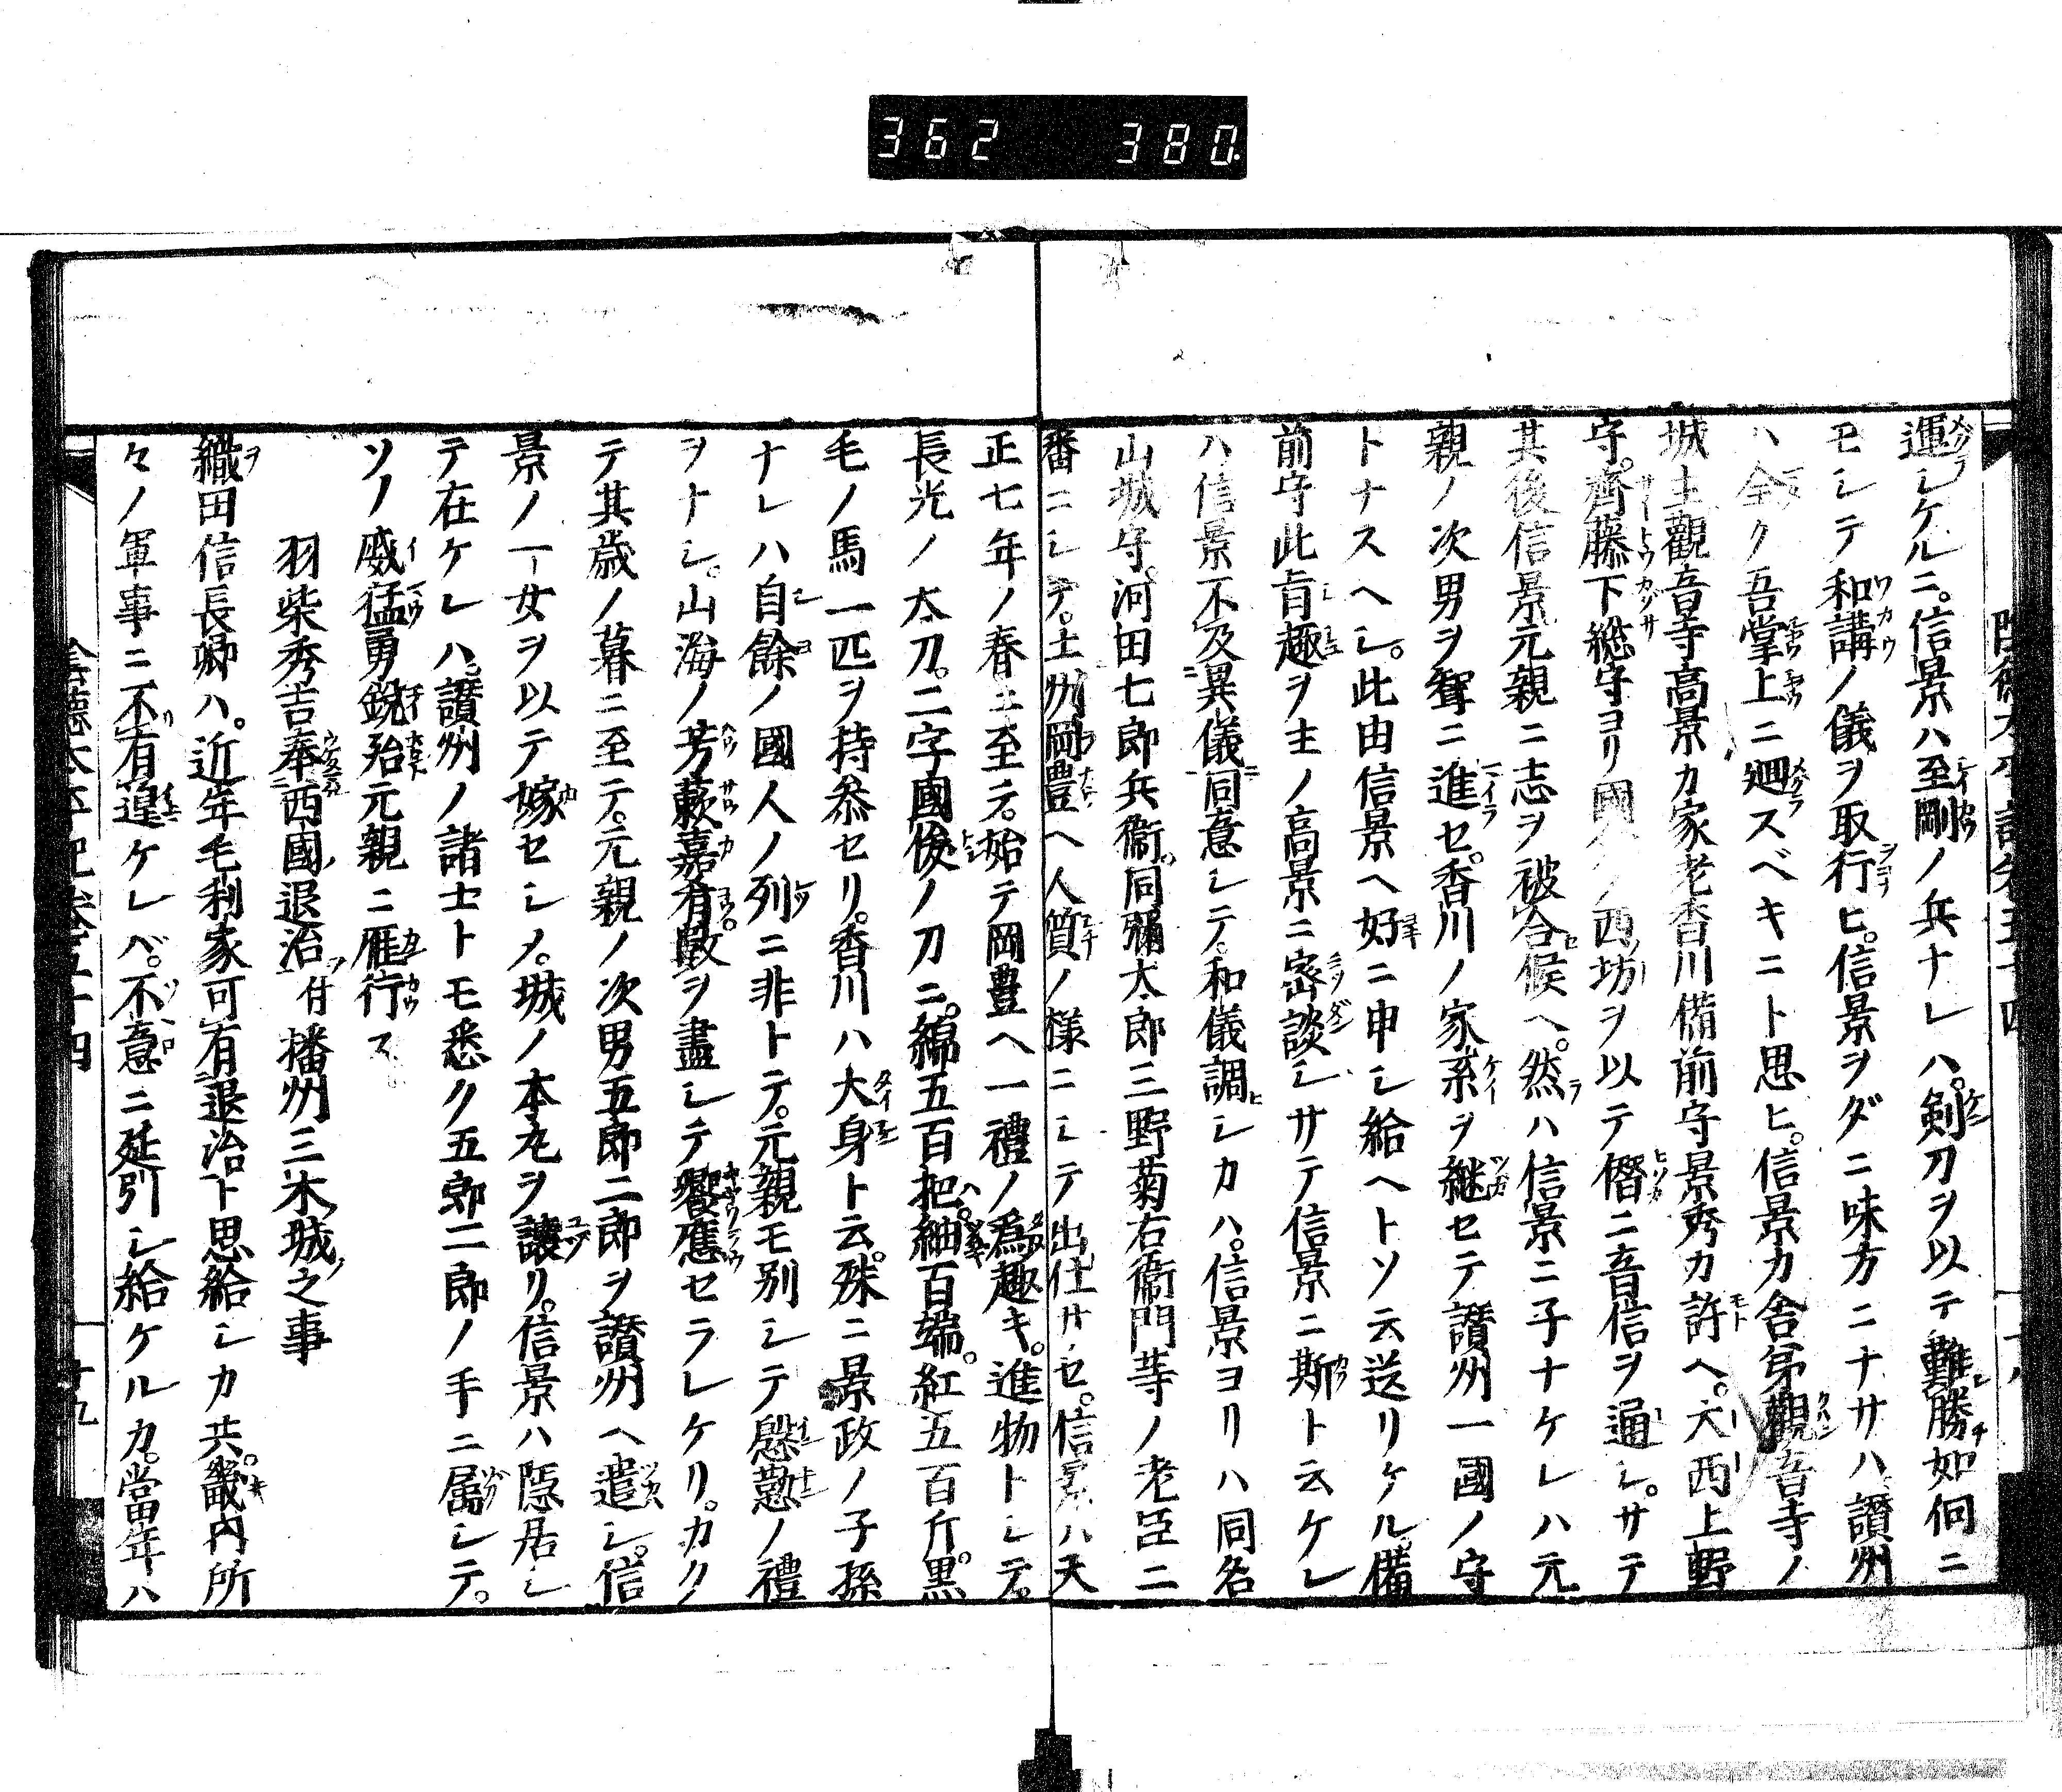 362 380.
運シケルニ。信景ハ至剛ノ兵ナレハ。剣刀ヲ以テ難勝如何ニ
モシテ和講ノ儀ヲ取行ヒ。信景ヲダニ味方ニナサハ讃州
ハ全ク吾掌上ニ廻スベキニト思ヒ。信景カ舎弟觀音寺ノ
城主觀音寺高景カ家老香川備前守景秀カ許ヘ。大西上野
守。齊藤下総守ヨリ國人ノ西ノ坊ヲ以テ僭ニ音信ヲ通シ。サテ
其後信景元親ニ志ヲ被合候ヘ。然ラハ信景ニ子ナケレハ元
親ノ次男ヲ聟ニ進セ。香川ノ家系ヲ継セテ讃州一國ノ守
トナスヘシ。此由信景ヘ好ニ申シ給ヘトソ云送リケル。備
前守此旨趣ヲ主ノ高景ニ密談シサテ信景ニ斯ト云ケレ
ハ信景不及異儀同意シテ。和儀調ヒシカハ。信景ヨリハ同名
山城守。河田七郎兵衞。同彌太郎三野菊右衞門等ノ老臣二
番ニシテ。土州岡豊ヘ人質ノ様ニシテ出仕サセ。信景ハ天
正七年ノ春ニ至テ。始テ岡豊ヘ一禮ノ爲趣キ。進物トシテ。
長光ノ太刀。二字國俊ノ刀ニ。綿五百把。紬百端。紅五百斤。黒
毛ノ馬一匹ヲ持参セリ。香川ハ大身ト云。殊ニ景政ノ子孫
ナレハ自餘ノ國人ノ列ニ非トテ。元親モ別シテ慇懃ノ禮
ヲトシ。山海ノ芳蔌嘉肴ヲ盡シテ饗應セラレケリ。カク
テ其歳ノ暮ニ至テ。元親ノ次男五郎二郎ヲ讃州ヘ遣シ。信
景ノ一女ヲ以テ嫁セシメ。城ノ本丸ヲ讓リ。信景ハ隠居シ
テ在ケレハ。讃州ノ諸士トモ悉ク五郎二郎ノ手ニ属シテ。
ソノ威猛勇鋭殆元親ニ雁行ス
羽柴秀吉奉西國ノ退治ヲ付播州三木城之事
織田信長卿ハ。近年毛利家可有退治ト思給シカ共。畿内所
々ノ軍事ニ不有遑ケレバ。不意ニ延引シ給ケルカ。當年ハ